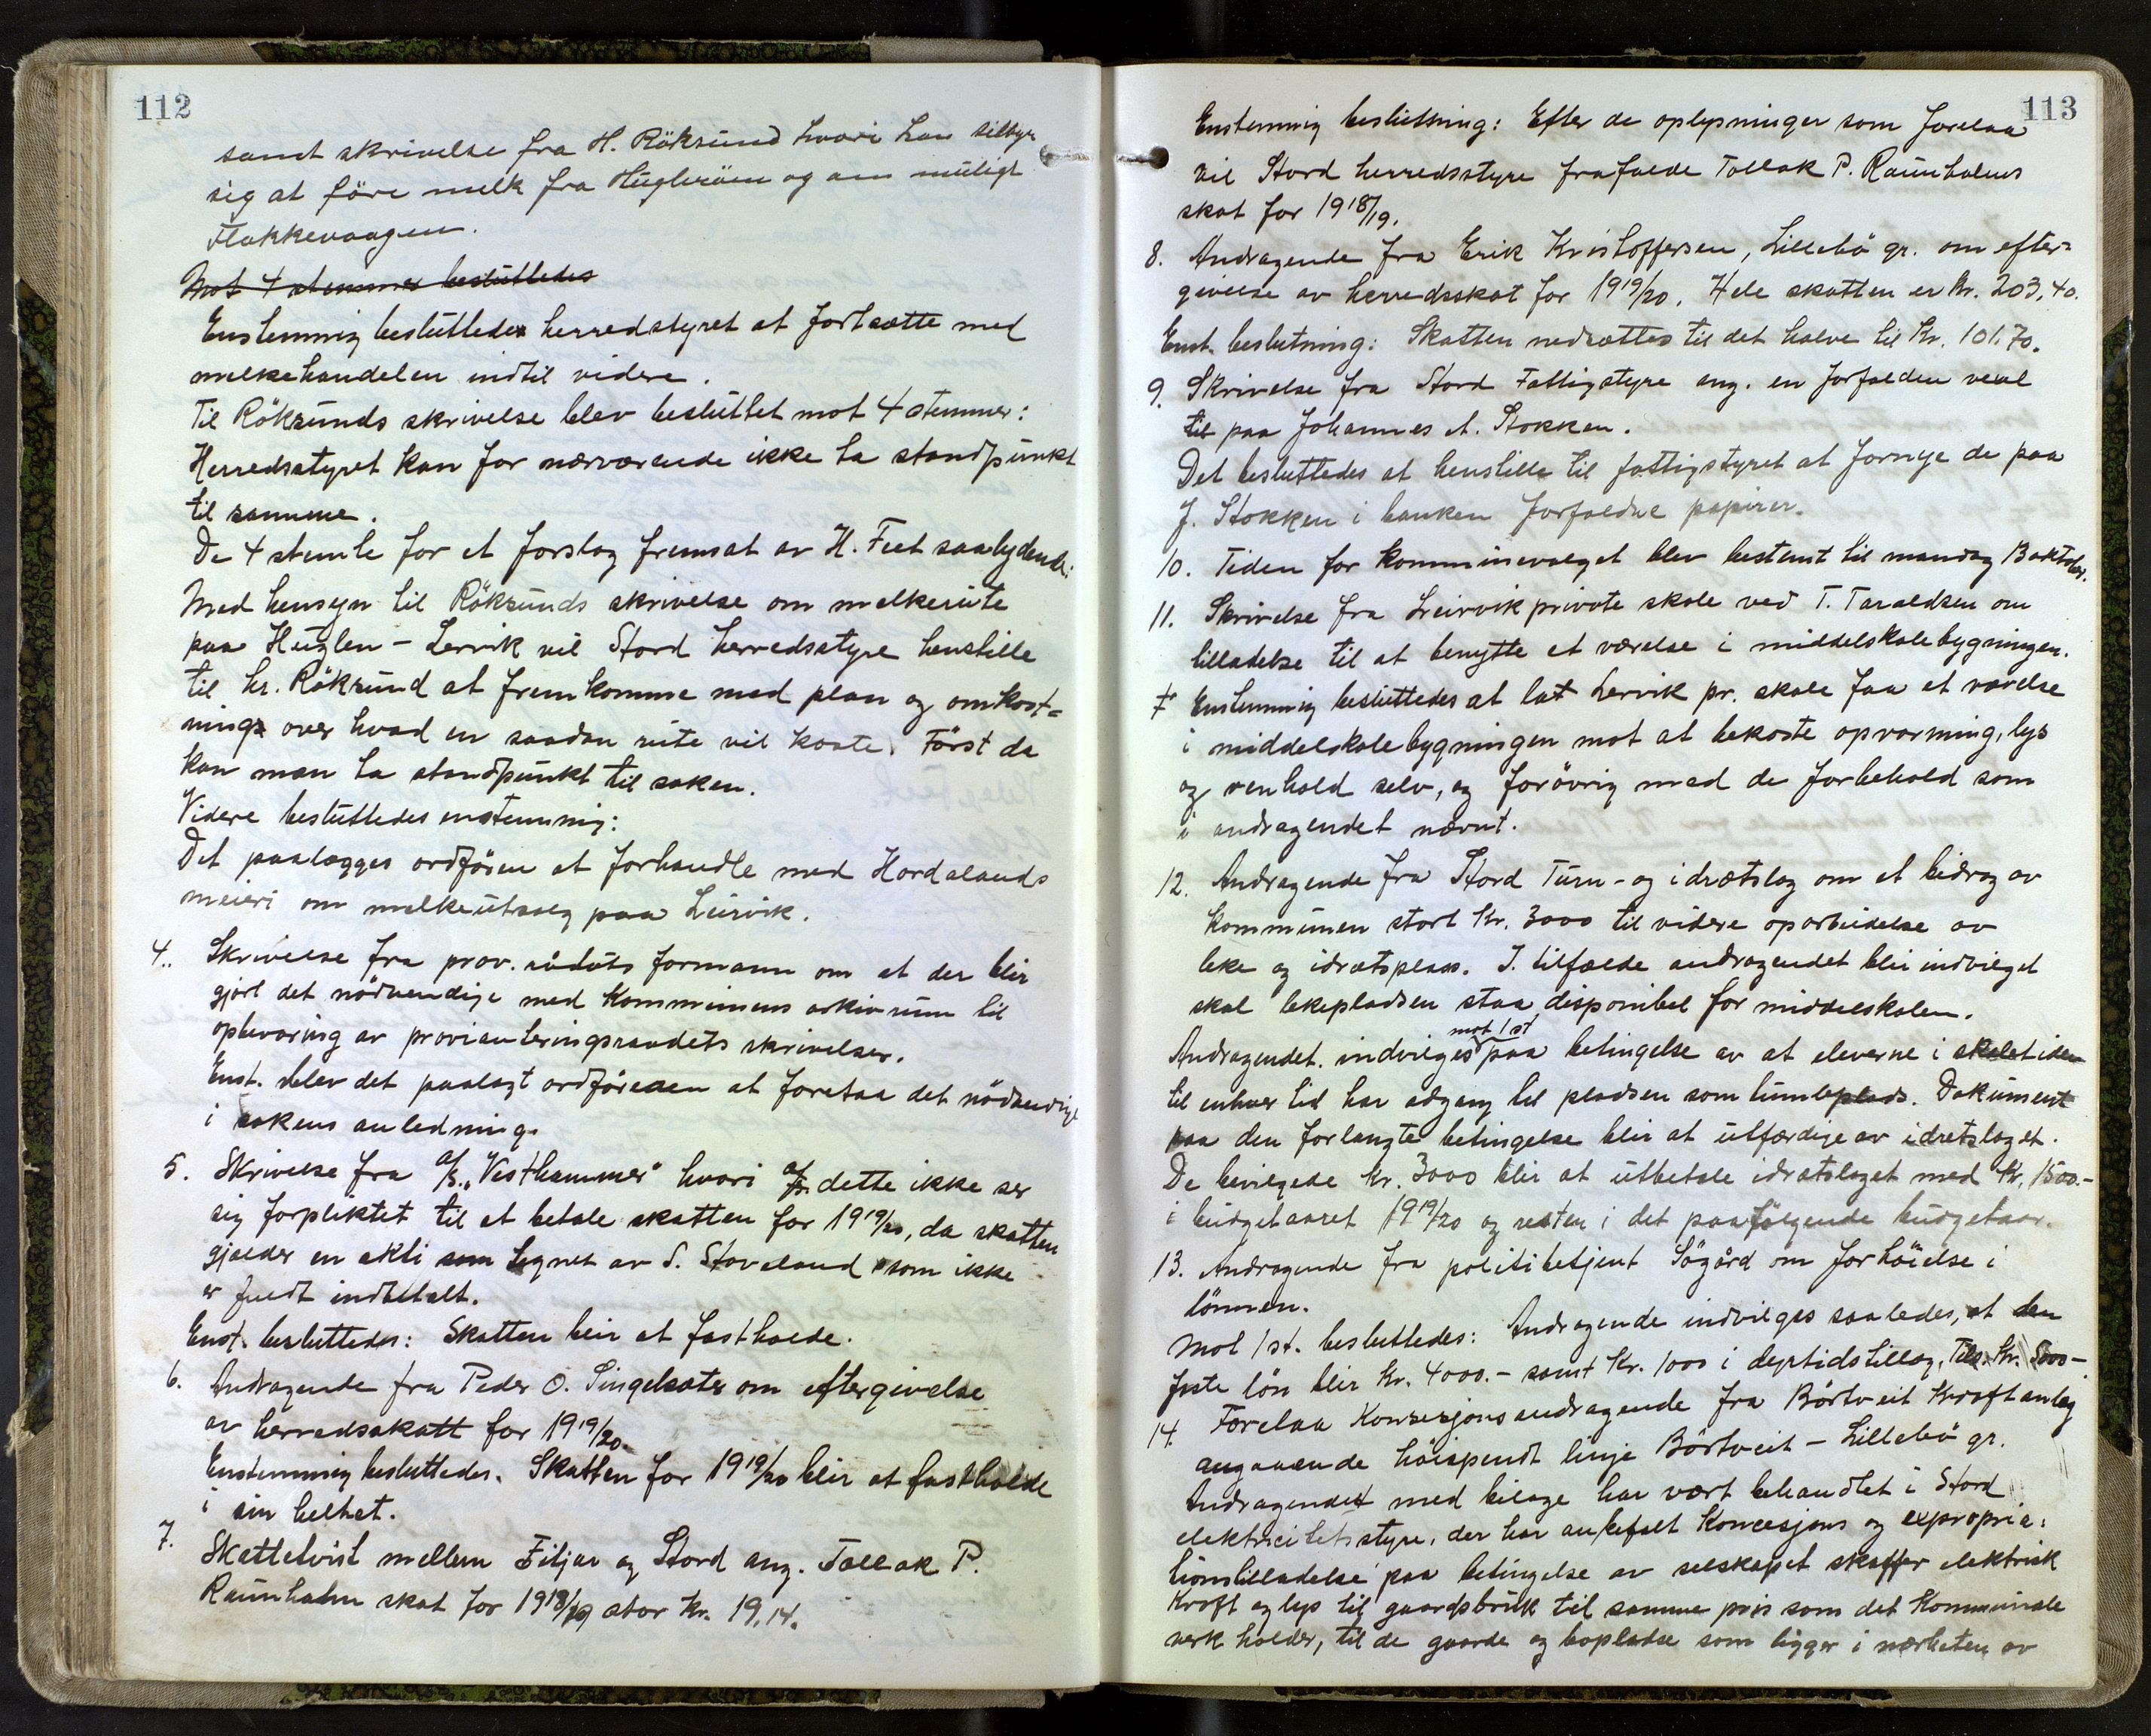 112
samt skrivelse fra H. Röksund hvori han tilbyr
sig at före melk fra Hugleröen og om muligt
Flakkevaagen.
Mot 4 stemmer besluttedes
Enstemmig besluttedes herredstyret at fortsætte med
melkehandelen indtil videre.
Til Röksunds skrivelse blev besluttet mot 4 stemmer:
Herredsstyret kan for nærværende ikke ta standpunkt
til samme.
De 4 stemte for et forslag fremsat av H. Feet saalydende:
Med hensyn til Röksunds skrivelse om melkerute
paa Huglen - Lervik vil Stord herredsstyre henstille
til hr. Röksund at fremkomme med plan og omkost=
ning over hvad en saadan rute vil koste. Först da
kan man ta standpunkt til saken.
Videre besluttedes enstemmig:
Det paalægges ordfören at forhandle med Hordalands
meieri om melkeutsalg paa Leirvik.
4. Skrivelse fra prov. rådets formann om at der blir
gjort det nödvendige med Kommunens arkivrum til
opbevaring av provianteringsraadets skrivelser.
Enst. blev det paalagt ordföreren at foretaa det nödvendige
i sakens anledning.
5. Skrivelse fra A/S. "Vesthammer" hvori A/S. dette ikke ser
sig forpliktet til at betale skatten for 1919/20, da skatten
gjælder en akti som tegnet av S. Stoveland som ikke
er fuldt indbetalt.
Enst. besluttedes: Skatten blir at fastholde.
6. Andragende fra Peder O. Singelsater om eftergivelse
av herredsskatt for 1919/20.
Enstemmig besluttedes. Skatten for 1919/20 blir at fastholde
i sin helhet.
7. Skattetvist mellem Fitjar og Stord ang. Tollak P.
Raunholm skat for 1918/19 stor kr. 19,14.
113
Enstemmig beslutning: Efter de oplysninger som forelaa
vil Stord herredsstyre frafalde Tollak P. Raunholms
skat for 1918/19.
8. Andragende fra Erik Kristoffersen, Lillebö gr. om efter=
givelse av herredsskat for 1919/20. Hele skatten er Kr. 203,40.
Enst. beslutning: Skatten nedsættes til det halve til Kr. 101.70.
9. Skrivelse fra Stord Fattigstyre ang. en forfalden vexl
til paa Johannes A. Stokken.
Det besluttedes at henstille til fattigstyret at fornye de paa
J. Stokken i banken forfaldne papirer.
10. Tiden for kommunevalget blev bestemt til mandag 13 oktober.
11. Skrivelse fra Leirvik private skole ved T. Taraldsen om
tilladelse til at benytte et værelse i middelskolebygningen.
Enstemmig besluttedes at lat Lervik pr. skole faa et værelse
i middelskolebygningen mot at bekoste opvarming, lys
og renhold selv, og forövrig med de forbehold som
i andragendet nævnt.
12. Andragende fra Stord Turn- og idrætslag om et bidrag av
kommunen stort Kr. 3000 til videre oparbeidelse av
leke og idrætsplass. I tilfælde andragendet blir indvilget
skal lekepladsen staa disponibel for middelskolen.
mot 1 st
Andragendet indvilges paa betingelse av at eleverne i skoletiden
til enhver tid har adgang til pladsen som tumleplads. Dokument
paa den forlangte betingelse blir at utfærdige av idretslaget.
De bevilgede Kr. 3000 blir at utbetale idrætslaget med Kr. 1500.-
i budgetaaret 1919/20 og resten i det paafölgende budgetaar.
13. Andragende fra politibetjent Sögård om forhöielse i
lönnen.
Mot 1 st. besluttedes: Andragende indvilges saaledes, at den
faste lön blir Kr. 4000.- samt Kr. 1000 i dyrtidstillæg, Tils. Kr. 5000-
14. Forelaa Konsesjonsandragende fra Börtveit Kraftanlæg
angaaende höispendt linje Börtveit - Lillebö gr.
Andragendet med bilage har vært behandlet i Stord
elektricitetsstyre, der har anbefalt Koncesjons og expropria=
tionstilladelse paa betingelse av selskapet skaffer elektrisk
kraft og lys til gaardsbruk til samme pris som det Kommunale
verk holder, til de gaarde og bopladse som ligger i nærheten av